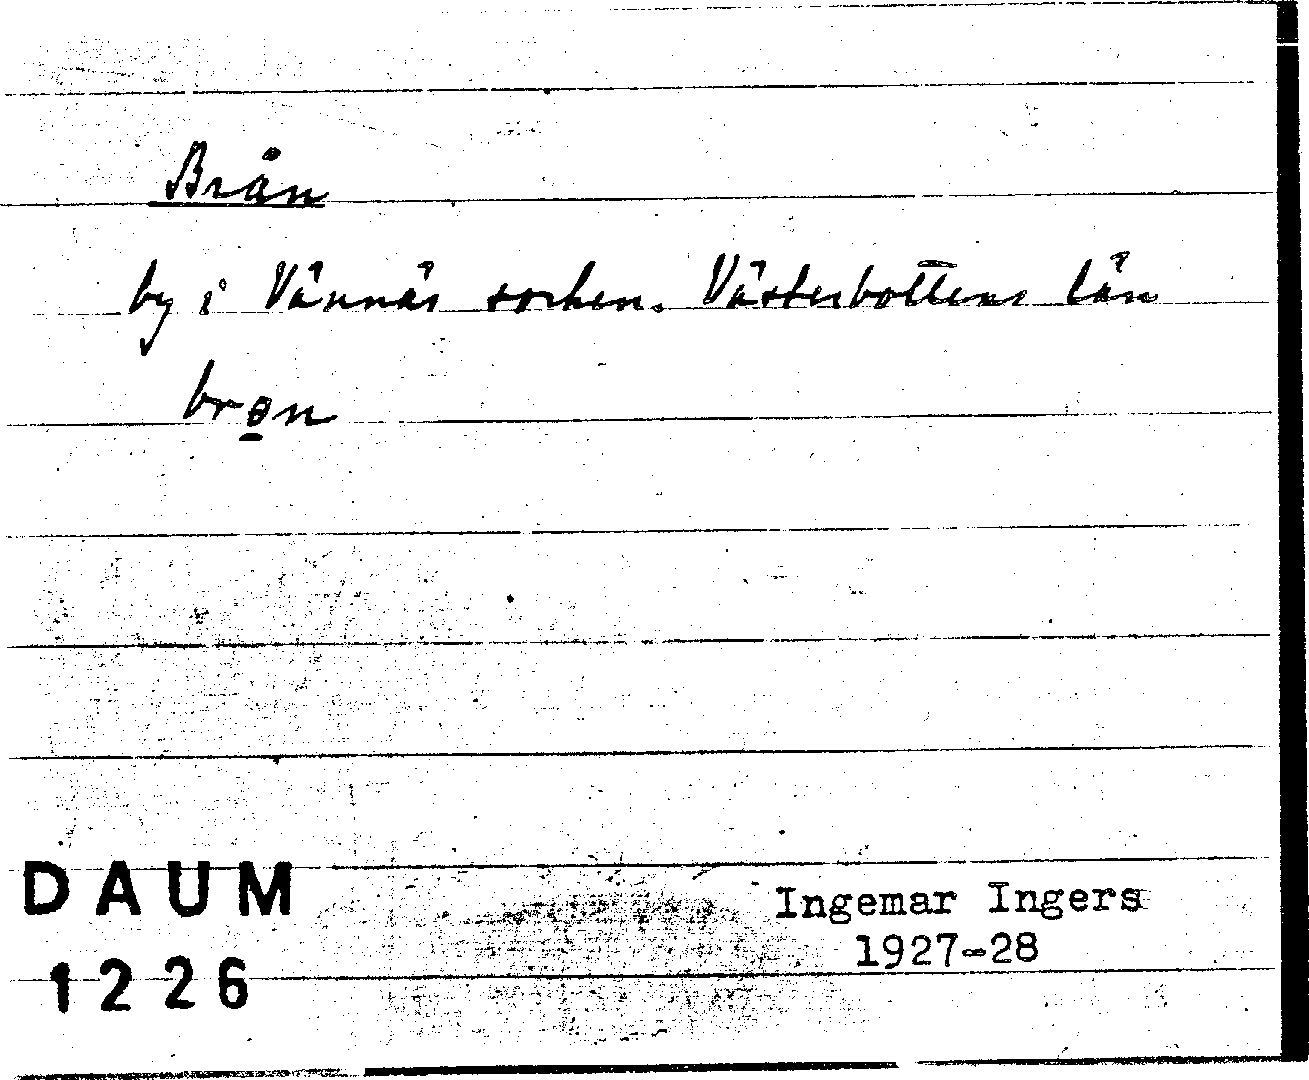 Brån
by i Vännäs socken. Västerbottens län
brɵ̲n
DAUM
1226
Ingemar Ingers
1927-28